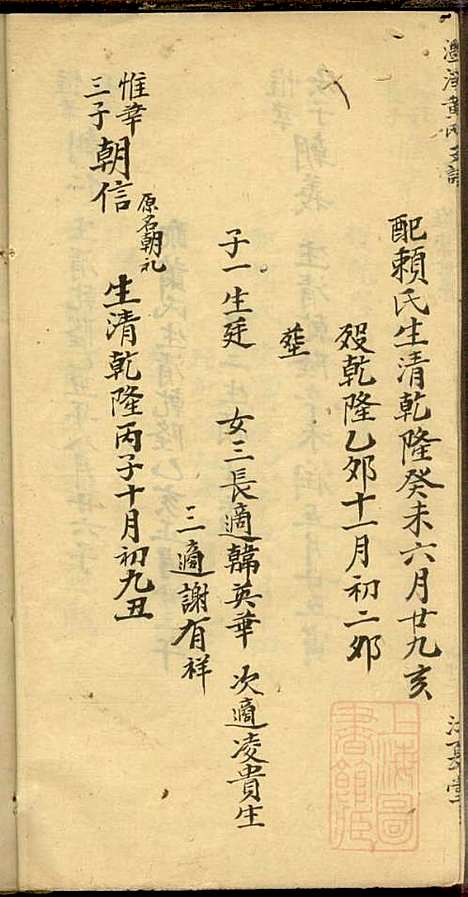 配賴氏生清乾隆癸未六月廿九亥
歿乾隆乙卯十一月初二卯
塟
子一生廷
女三長適韓英華次適凌貴生
三適謝有祥
惟華
三子朝信
原名朝礼
生清乾隆丙子十月初九丑
上海圖書館藏